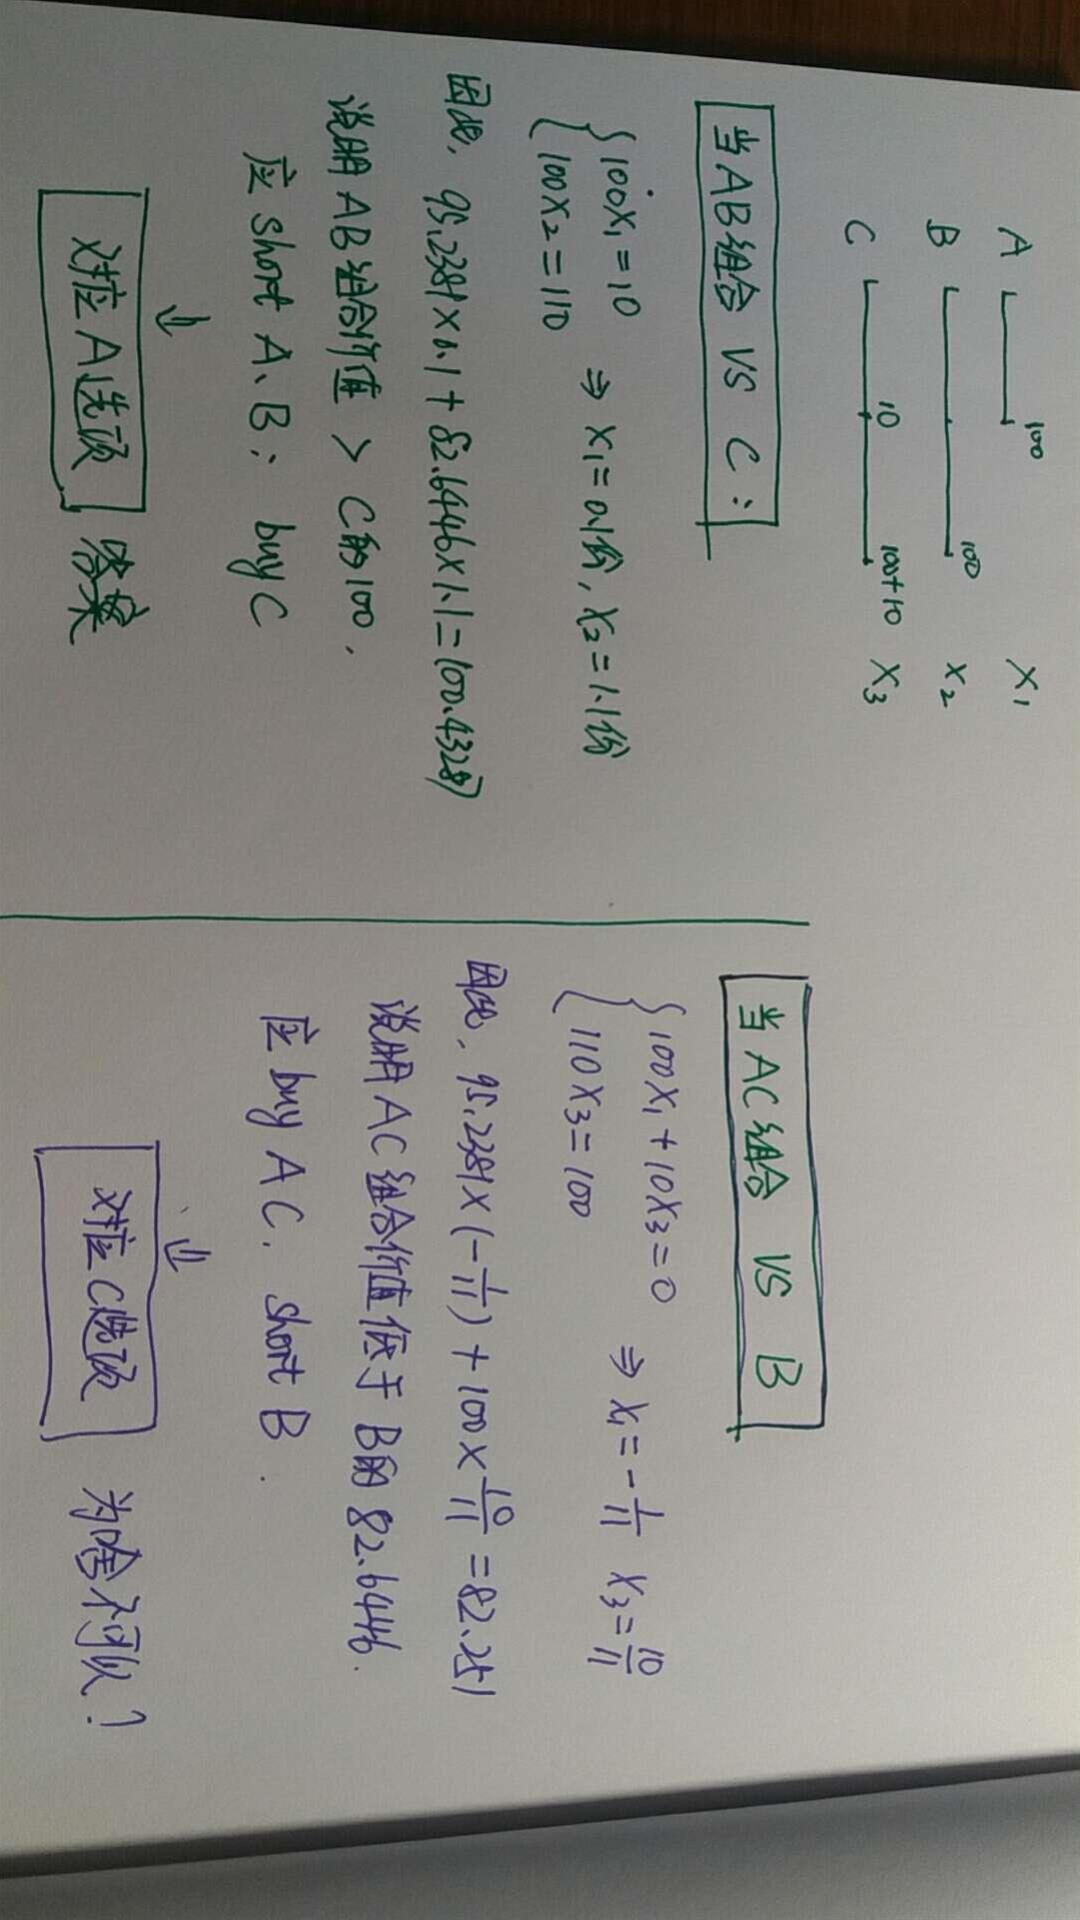 A 100 X₁
B 100 X₂
C 10 100+10 X₃
当AB组合 VS C:
{100X₁=10
100X₂=110 ⇒ X₁=0.1份, X₂=1.1份
因此, 95.2381×0.1+82.6446×1.1=100.43287
说明AB组合价值 > C的100,
应 short A、B; buy C
⇓
对应A选项 答案
当AC组合 VS B
{100X₁+10X₃=0
110X₃=100 ⇒ X₁=-1/11 X₃=10/11
因此, 95.2381×(-1/11)+100×10/11=82.251
说明AC组合价值低于B的82.6446.
应 buy AC, short B.
⇓
对应C选项 为啥不可以?